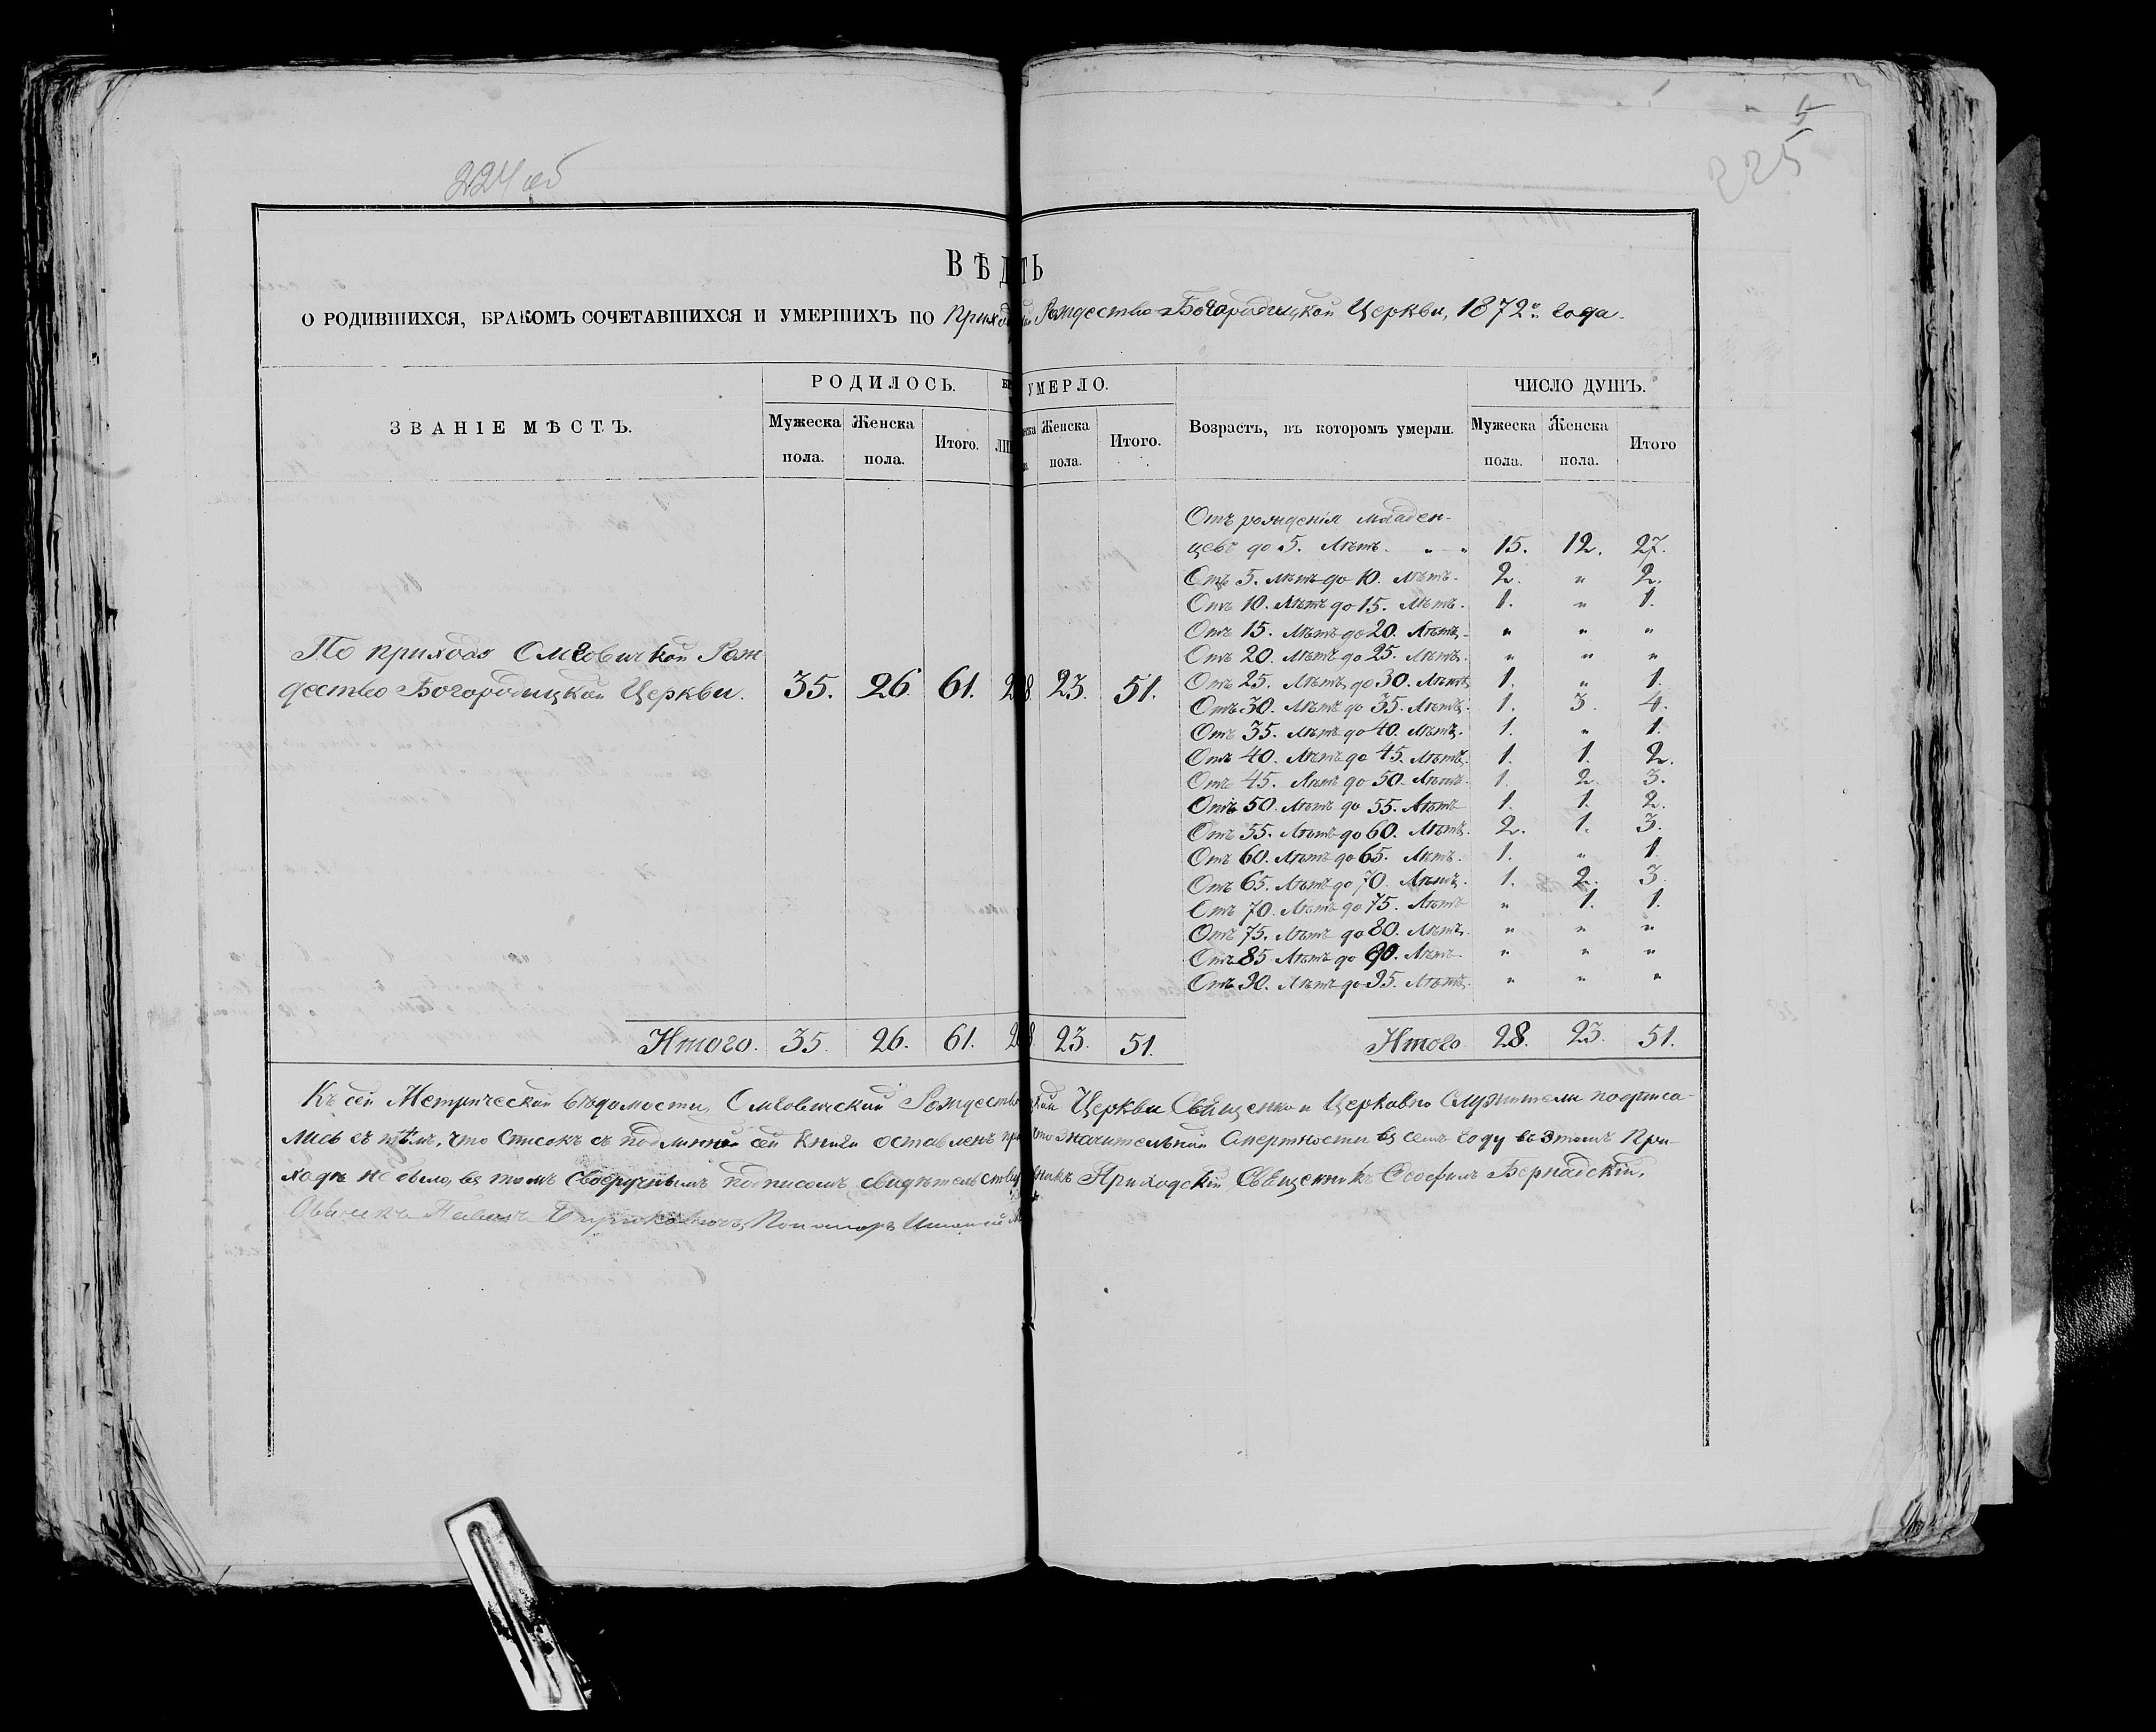 224 об
5
225
ВѢД ТЬ
О РОДИВШИХСЯ, БРАКОМЪ СОЧЕТАВШИХСЯ И УМЕРШИХЪ ПО Рождество-Богородицкой Церкви, 1872го года.
ЗВАНІЕ МѢСТЪ.
РОДИЛОСЬ.
УМЕРЛО.
Возрастъ, въ которомъ умерли.
ЧИСЛО ДУШЪ.
Мужеска пола. Женска пола. Итого.
Женска пола. Итого.
Мужеска пола. Женска пола. Итого
По приходо Омговичкой Рож
дество Богородицкой Церкви. 35. 26. 61. 23. 51.
Отъ рожденія младен-
цевъ до 5. лѣтъ. „ „ 15. 12. 27.
Отъ 5. лѣтъ до 10. лѣтъ. 2. „ 2.
Отъ 10. лѣтъ до 15. лѣтъ. 1. „ 1.
Отъ 15. лѣтъ до 20. лѣтъ. „ „ „
Отъ 20. лѣтъ до 25. лѣтъ. „ „ „
Отъ 25. лѣтъ до 30. лѣтъ 1. „ 1.
Отъ 30. лѣтъ до 35. лѣтъ. 1. 3. 4.
Отъ 35. лѣтъ до 40. лѣтъ. 1. „ 1.
Отъ 40. лѣтъ до 45. лѣтъ. 1. 1. 2.
Отъ 45. лѣтъ до 50. лѣтъ. 1. 2. 3.
Отъ 50. лѣтъ до 55. лѣтъ 1. 1. 2.
Отъ 55. лѣтъ до 60. лѣтъ. 2. 1. 3.
Отъ 60. лѣтъ до 65. лѣтъ. 1. „ 1.
Отъ 65. лѣтъ до 70. лѣтъ. 1. 2. 3.
Отъ 70. лѣтъ до 75. лѣтъ „ 1. 1.
Отъ 75. лѣтъ до 80. лѣтъ. „ „ „
Отъ 85. лѣтъ до 90. лѣтъ. „ „ „
Отъ 90. лѣтъ до 95. лѣтъ. „ „ „
Итого. 35. 26. 61. 23. 51.
Итого 28. 23. 51.
Къ сей Метрической вѣдомости, Омговичской Церкви Священно и Церковно Служители подписа-
лись съ тѣмъ, что Списокъ съ подлинной сей Книги оставленъ значительной Смертности въ семъ году въ этомъ При-
ходѣ не было, въ томъ своеручнымъ подписомъ Приходскій Священникъ Ѳеофилъ Бернадскій,
Павелъ Пономарь